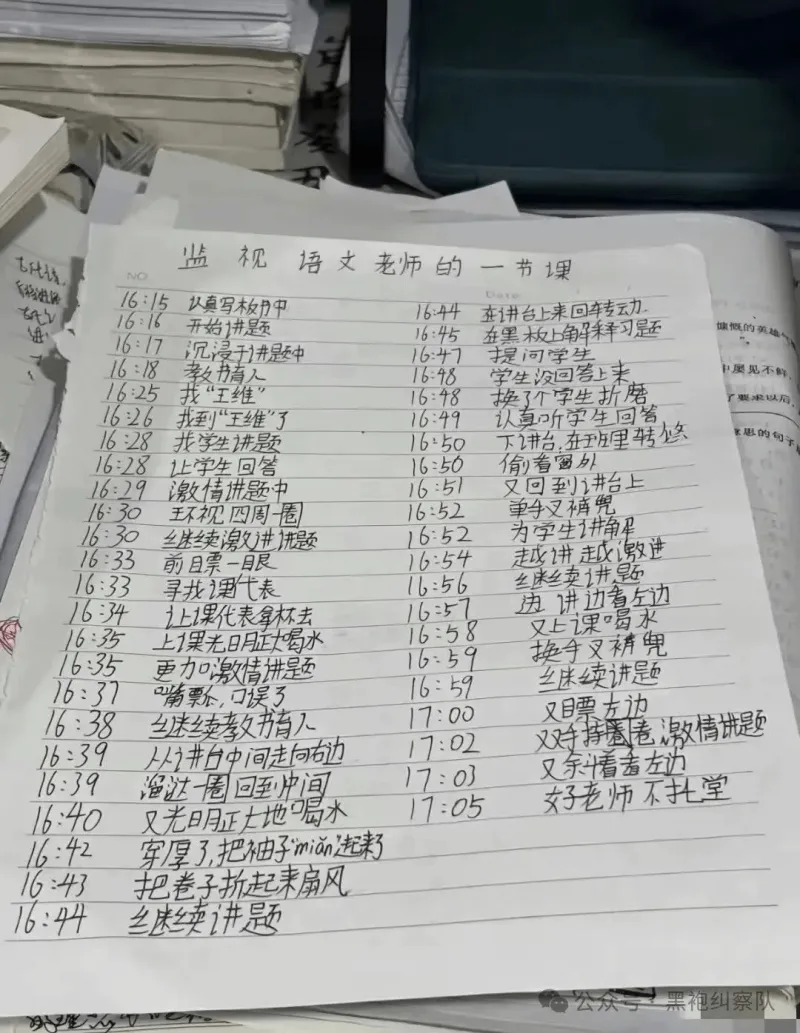 监视语文老师的一节课
NO
Date
16:15 认真写板书中
16:16 开始讲题
16:17 沉浸于讲题中
16:18 教书育人
16:25 找“王维”
16:26 找到“王维”了
16:28 找学生讲题
16:28 让学生回答
16:29 激情讲题中
16:30 环视四周一圈
16:30 继续激进讲题
16:33 前瞟一眼
16:33 寻找课代表
16:34 让课代表拿杯去
16:35 上课光明正大喝水
16:35 更加激情讲题
16:37 嘴瓢,口误了
16:38 继续教书育人
16:39 从讲台中间走向右边
16:39 溜达一圈回到中间
16:40 又光明正大地喝水
16:42 穿厚了,把袖子“miǎn”起来了
16:43 把卷子折起来扇风
16:44 继续讲题
16:44 在讲台上来回转动
16:45 在黑板上解释习题
16:47 提问学生
16:48 学生没回答上来
16:48 换了个学生折磨
16:49 认真听学生回答
16:50 下讲台,在班里转悠
16:50 偷看窗外
16:51 又回到讲台上
16:52 单手叉裤兜
16:52 为学生讲解
16:54 越讲越激进
16:56 继续讲题
16:57 边讲边看左边
16:58 又上课喝水
16:59 换手叉裤兜
16:59 继续讲题
17:00 又瞟左边
17:02 双手持卷,激情讲题
17:03 又斜着看左边
17:05 好老师不拖堂
慷慨的英雄
中屡见不鲜,
了要求以后,
意思的句子
公众号·黑袍纠察队